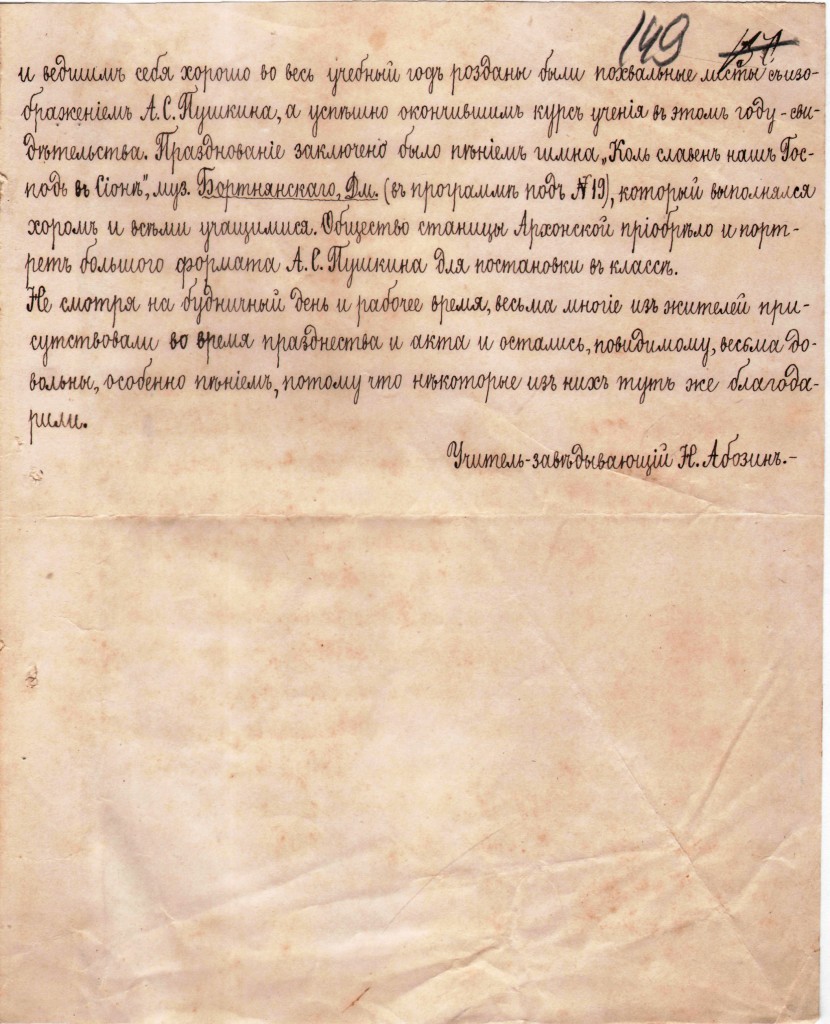 149
и ведшимъ себя хорошо во весь учебный годъ розданы были похвальные листы съ изо-
браженіемъ А.С.Пушкина, а успѣшно окончившимъ курсъ ученія въ этомъ году - сви-
дѣтельства. Празднованіе заключено было пѣніемъ гимна „Коль славенъ нашъ Гос-
подь въ Сіонѣ", муз. Бортнянскаго, Дм. (въ программѣ подъ №19), который выполнялся
хоромъ и всѣми учащимися. Общество станицы Архонской пріобрѣло и порт-
ретъ большого формата А.С.Пушкина для постановки въ классѣ.
Не смотря на будничный день и рабочее время, весьма многіе изъ жителей при-
сутствовали во время празднества и акта и остались, повидимому, весьма до-
вольны, особенно пѣніемъ, потому что нѣкоторые изъ нихъ тутъ же благода-
рили.
Учитель-завѣдывающій Н. Абозинъ.-